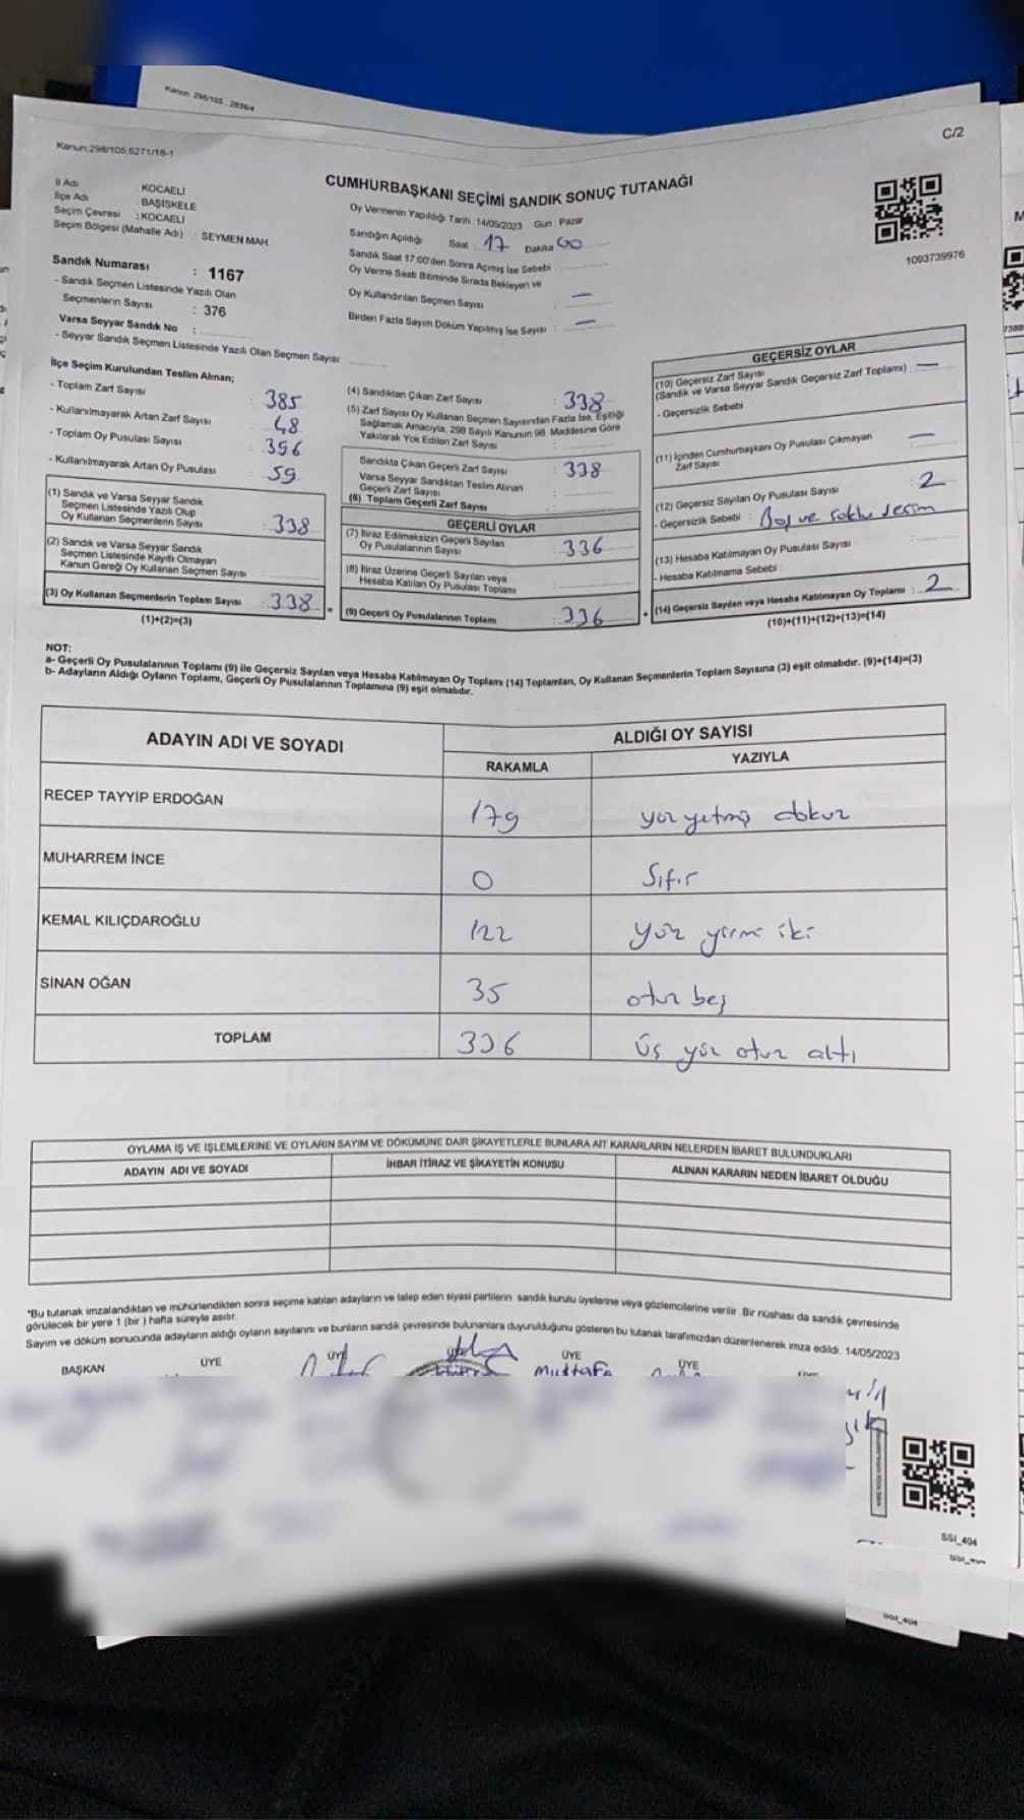 Kanun: 298/105
C/2
Kanun:298/105;6271/18-1
CUMHURBAŞKANI SEÇİMİ SANDIK SONUÇ TUTANAĞI
İl Adı KOCAELİ
İlçe Adı BAŞİSKELE
Seçim Çevresi : KOCAELİ
Seçim Bölgesi (Mahalle Adı) : SEYMEN MAH
Sandık Numarası : 1167
- Sandık Seçmen Listesinde Yazılı Olan
Seçmenlerin Sayısı : 376
Varsa Seyyar Sandık No :
- Seyyar Sandık Seçmen Listesinde Yazılı Olan Seçmen Sayısı
Oy Vermenin Yapıldığı Tarih : 14/05/2023 Gün : Pazar
Sandığın Açıldığı Saat 17 Dakika 00
Sandık Saat 17:00'den Sonra Açımış İse Sebebi
Oy Verme Saati Bitiminde Sırada Bekleyen ve
Oy Kullandırılan Seçmen Sayısı : —
Birden Fazla Sayım Döküm Yapılmış İse Sayısı : —
1093739976
İlçe Seçim Kurulundan Teslim Alınan;
- Toplam Zarf Sayısı : 385
- Kullanılmayarak Artan Zarf Sayısı 48
- Toplam Oy Pusulası Sayısı 396
- Kullanılmayarak Artan Oy Pusulası 59
(1) Sandık ve Varsa Seyyar Sandık
Seçmen Listesinde Yazılı Olup
Oy Kullanan Seçmenlerin Sayısı : 338
(2) Sandık ve Varsa Seyyar Sandık
Seçmen Listesinde Kayıtlı Olmayan
Kanun Gereği Oy Kullanan Seçmen Sayısı
(3) Oy Kullanan Seçmenlerin Toplam Sayısı : 338
(1)+(2)=(3)
=
(4) Sandıktan Çıkan Zarf Sayısı : 338
(5) Zarf Sayısı Oy Kullanan Seçmen Sayısından Fazla İse, Eşitliği
Sağlamak Amacıyla, 298 Sayılı Kanunun 98. Maddesine Göre
Yakılarak Yok Edilen Zarf Sayısı
Sandıkta Çıkan Geçerli Zarf Sayısı : 338
Varsa Seyyar Sandıktan Teslim Alınan
Geçerli Zarf Sayısı
(6) Toplam Geçerli Zarf Sayısı
GEÇERLİ OYLAR
(7) İtiraz Edilmeksizin Geçerli Sayılan
Oy Pusulalarının Sayısı : 336
(8) İtiraz Üzerine Geçerli Sayılan veya
Hesaba Katılan Oy Pusulası Toplamı
(9) Geçerli Oy Pusulalarının Toplamı : 336
+
GEÇERSİZ OYLAR
(10) Geçersiz Zarf Sayısı
(Sandık ve Varsa Seyyar Sandık Geçersiz Zarf Toplamı) —
- Geçersizlik Sebebi
(11) İçinden Cumhurbaşkanı Oy Pusulası Çıkmayan
Zarf Sayısı —
(12) Geçersiz Sayılan Oy Pusulası Sayısı : 2
- Geçersizlik Sebebi : Boş ve
(13) Hesaba Katılmayan Oy Pusulası Sayısı
- Hesaba Katılmama Sebebi :
(14) Geçersiz Sayılan veya Hesaba Katılmayan Oy Toplamı : 2
(10)+(11)+(12)+(13)=(14)
NOT:
a- Geçerli Oy Pusulalarının Toplamı (9) ile Geçersiz Sayılan veya Hesaba Katılmayan Oy Toplamı (14) Toplamları, Oy Kullanan Seçmenlerin Toplam Sayısına (3) eşit olmalıdır. (9)+(14)=(3)
b- Adayların Aldığı Oyların Toplamı, Geçerli Oy Pusulalarının Toplamına (9) eşit olmalıdır.
ADAYIN ADI VE SOYADI
ALDIĞI OY SAYISI
RAKAMLA YAZIYLA
RECEP TAYYİP ERDOĞAN 179 yüz yetmiş dokuz
MUHARREM İNCE 0 Sıfır
KEMAL KILIÇDAROĞLU 122 yüz yirmi iki
SİNAN OĞAN 35 otuz beş
TOPLAM 336 üç yüz otuz altı
OYLAMA İŞ VE İŞLEMLERİNE VE OYLARIN SAYIM VE DÖKÜMÜNE DAİR ŞİKAYETLERLE BUNLARA AİT KARARLARIN NELERDEN İBARET BULUNDUKLARI
ADAYIN ADI VE SOYADI İHBAR İTİRAZ VE ŞİKAYETİN KONUSU ALINAN KARARIN NEDEN İBARET OLDUĞU
*Bu tutanak imzalandıktan ve mühürlendikten sonra seçime katılan adayların ve talep eden siyasi partilerin sandık kurulu üyelerine veya gözlemcilerine verilir. Bir nüshası da sandık çevresinde
görülecek bir yere 1 (bir) hafta süreyle asılır.
Sayım ve döküm sonucunda adayların aldığı oyların sayılarını ve bunların sandık çevresinde bulunanlara duyurulduğunu gösteren bu tutanak tarafımızdan düzenlenerek imza edildi. 14/05/2023
BAŞKAN ÜYE ÜYE ÜYE ÜYE
Mustafa
SGI_404